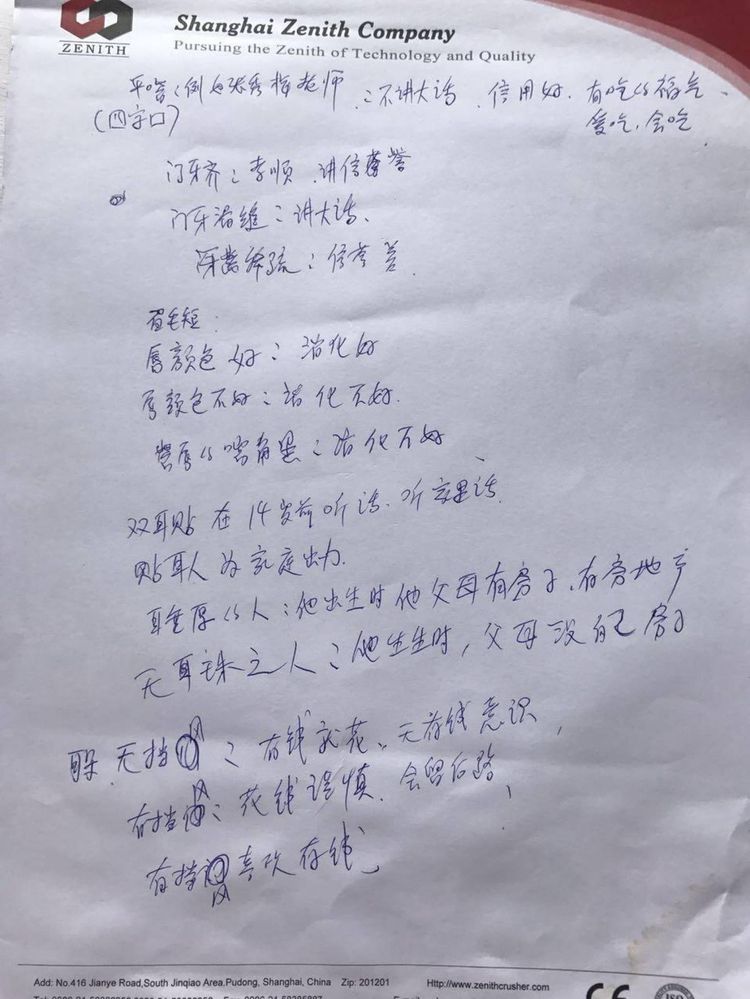 ZENITH
Shanghai Zenith Company
Pursuing the Zenith of Technology and Quality
平嘴:例如张秀 老师:不讲大话 信用好. 有吃的福气
(四字口)
爱吃,会吃
门牙齐:孝顺 讲信誉
门牙 缝:讲大话.
牙齿稀疏:信誉差
眉毛短:
唇颜色好:消化好
唇颜色不好:消化不好.
嘴唇的嘴角黑:消化不好
双耳贴 在14岁前听话.听家里话
贴耳人为家庭出力.
耳垂厚的人:他出生时他父母有房子,有房地产
无耳珠之人:他出生时,父母没自己房子
耳朵无挡 :有钱就花,无存钱意识,
有挡 :花钱谨慎.会留后路,
有挡 喜欢存钱
Add: No.416 Jianye Road,South Jinqiao Area,Pudong, Shanghai, China Zip: 201201 Http://www.zenithcrusher.com
CE
ISO